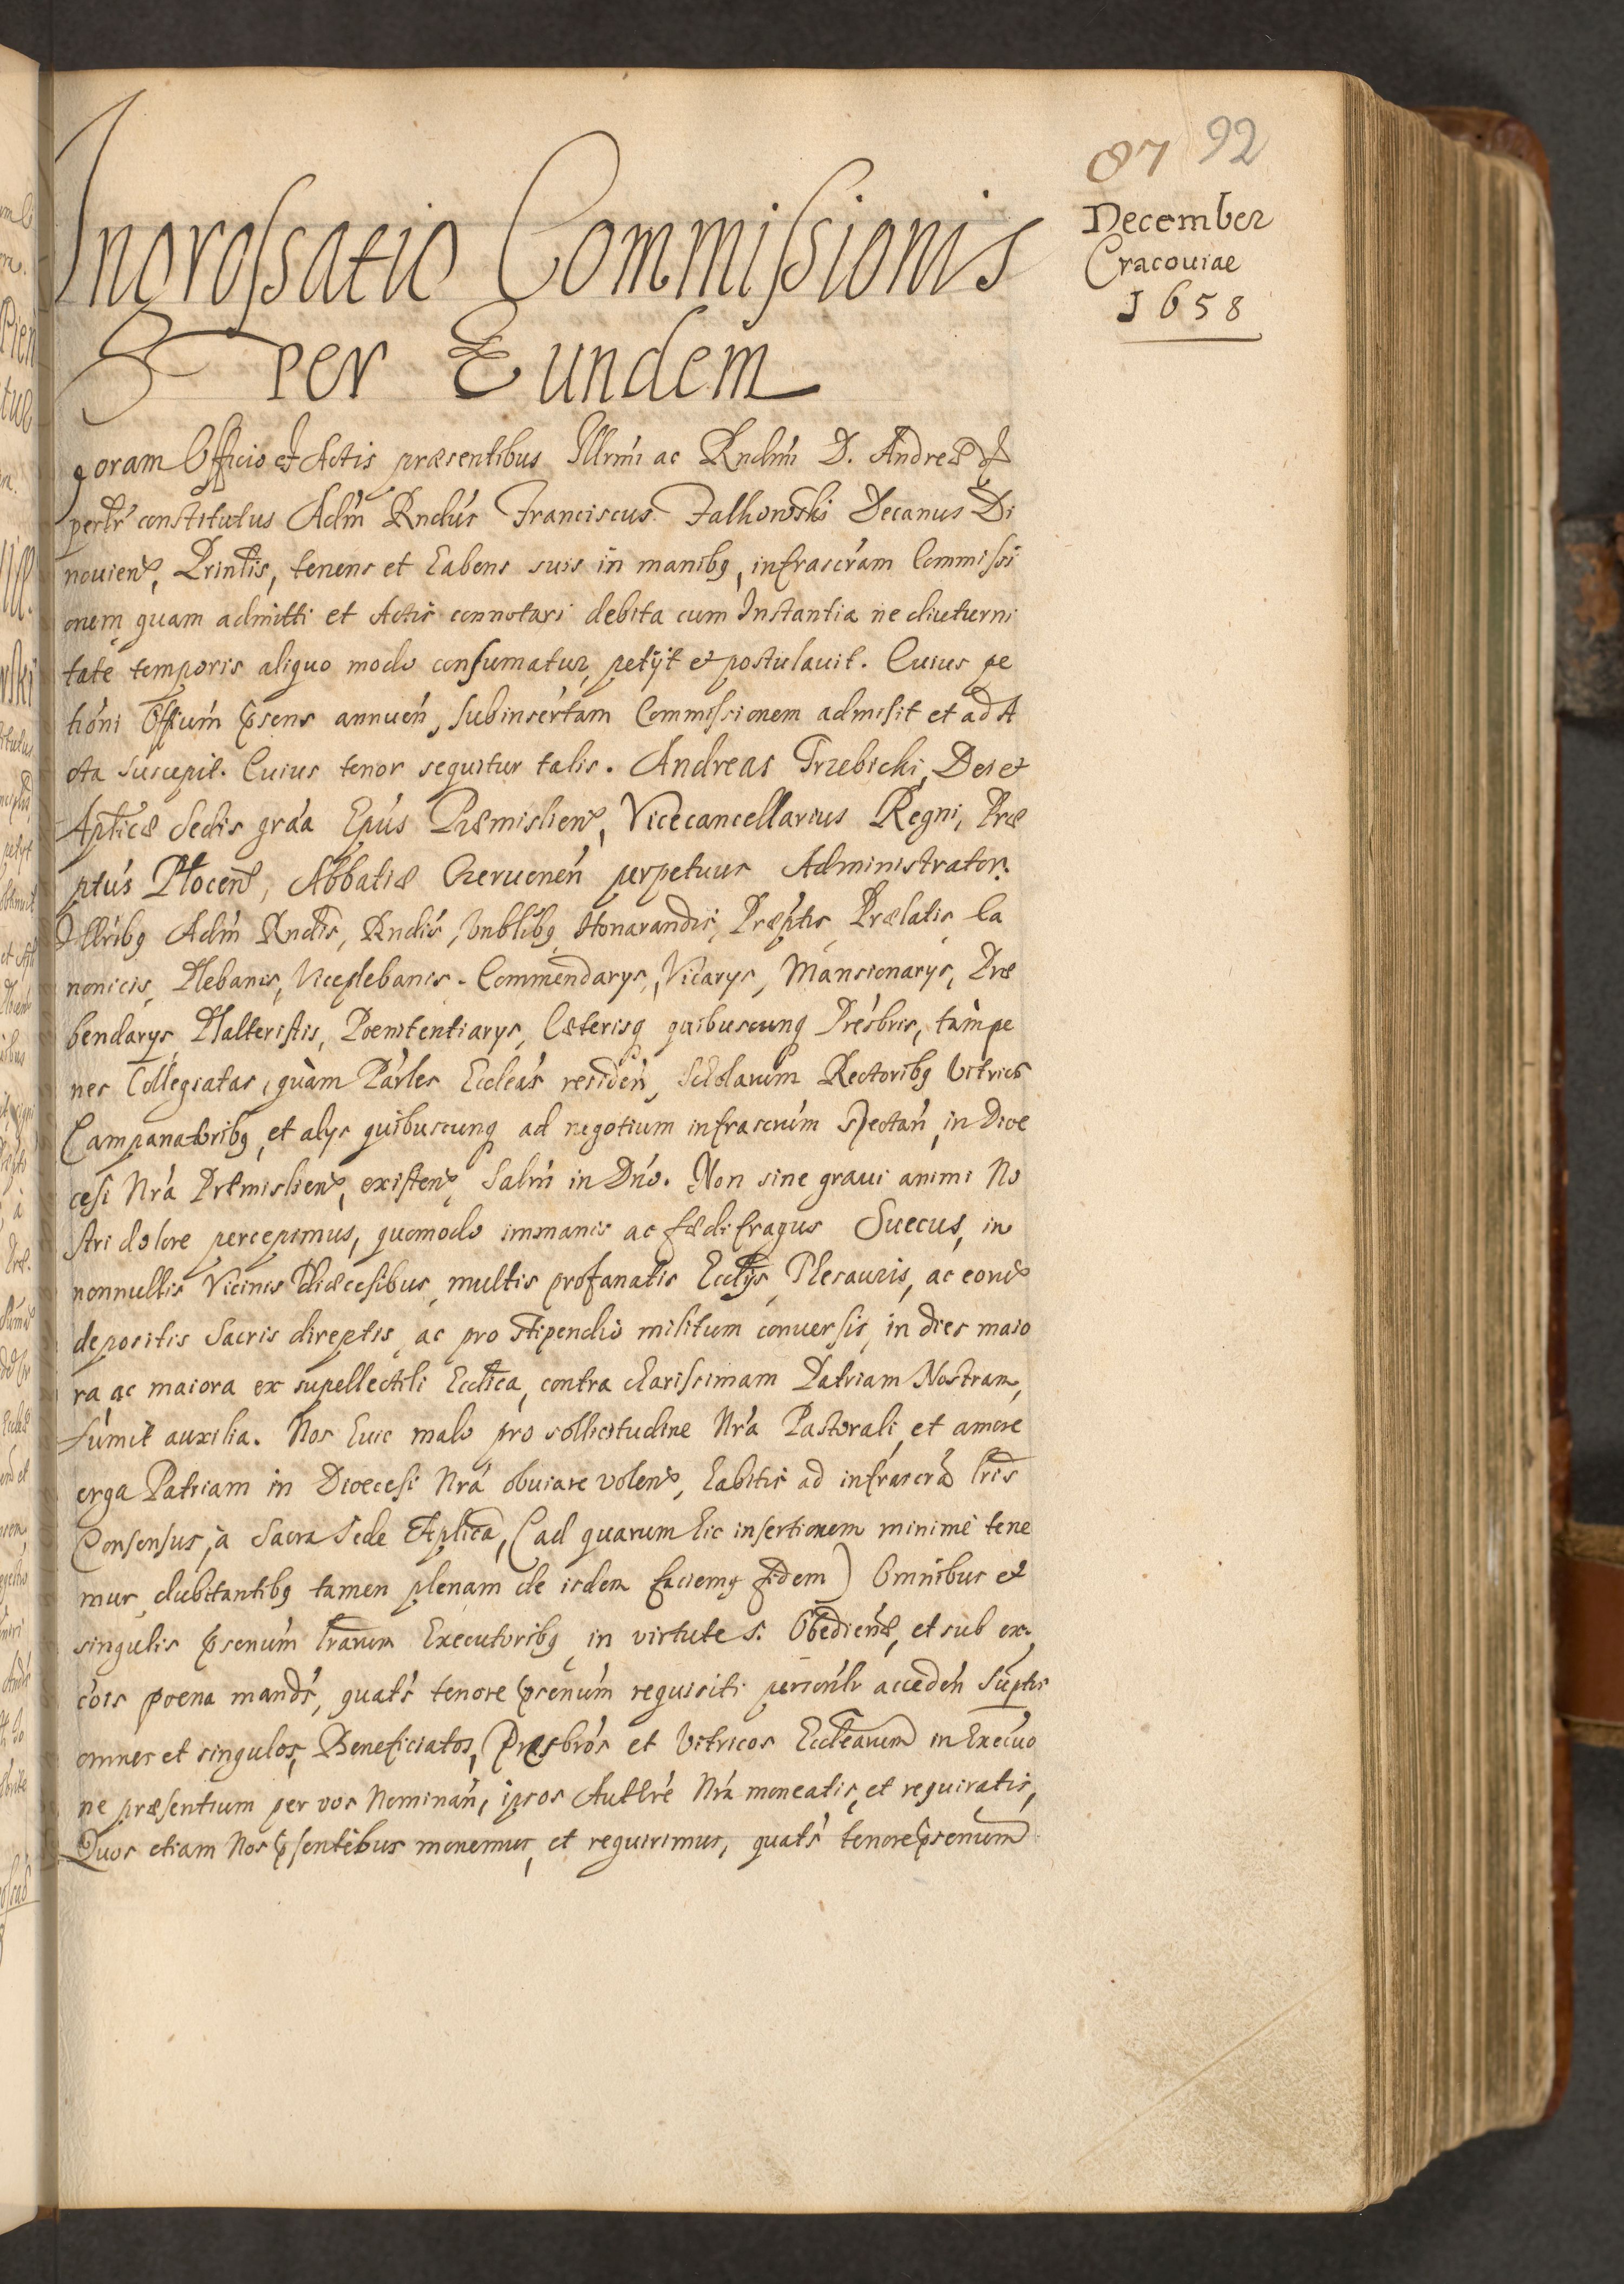 87 92
December
Cracouiae
1658
Ingrossatio Commissionis
per Eundem
Coram Officio et Actis præsentibus Illrmi ac Rndmi D. Andreæ &
perlr constitutus Adm Rndus Franciscus Falkowski Decanus Di
nouien, Printis, tenens et habens suis in manibq, infrascram Commissi
onem quam admitti et Actis connotari debita cum Instantia ne diuturni
tate temporis aliquo modo consumatur, petijt et postulauit. Cuius pe
tioni Offium psens annuen, subinsertam Commissionem admisit et ad A
cta suscepit. Cuius tenor sequitur talis. Andreas Trzebicki, Dei et
Aplicæ Sedis graa Epus Præmislien, Vicecancellarius Regni, Præ
ptus Plocen, Abbatiæ Czeruenen perpetuus Administrator.
Illribq Adm Rndis, Rndis, Vnblibq Honorandis, Præptis, Prælatis, Ca
nonicis, Plebanis, Viceplebanis. Commendarys, Vicarys, Mansionarys, Præ
bendarys Psalteristis, Poenitentiarys, Cæterisq quibuscunq Presbris, tam pe
nes Collegiatas, quàm Parles Eccleas residen, Scholarum Rectoribq Vitricis
Campanatoribq, et alys quibuscunq ad negotium infrascrum spectan, in Dioe
cesi Nra Præmislien, existen, Salm in Dno. Non sine graui animi No
stri dolore percepimus, quomodo immanis ac fædifragus Suecus, in
nonnullis Vicinis Diæcesibus, multis profanatis Ecclijs, Thesauris, ac eorum
depositis Sacris direptis, ac pro stipendio militum conuersis, in dies maio
ra, ac maiora ex supellectili Ecclica, contra charissimam Patriam Nostram,
sumit auxilia. Nos huic malo pro sollicitudine Nra Pastorali, et amore
erga Patriam in Dioecesi Nra obuiare volen, habitis ad infrascra lris
Consensus, à Sacra Sede Aplica, (ad quarum hic insertionem minimè tene
mur, dubitantibq tamen plenam de isdem faciemq fidem) Omnibus et
singulis psenum lrarum Executoribq, in virtute S. Obedienæ, et sub ex
cois poena mands, quats tenore psenum requisiti personlr acceden Suptis
omnes et singulos, Beneficiatos, Presbros et Vitricos Ecclearum in Execuo
ne præsentium per vos Nominan, ipsos Authre Nra moneatis, et requiratis,
Quos etiam Nos psentibus monemus, et requirimus, quats tenore psenum